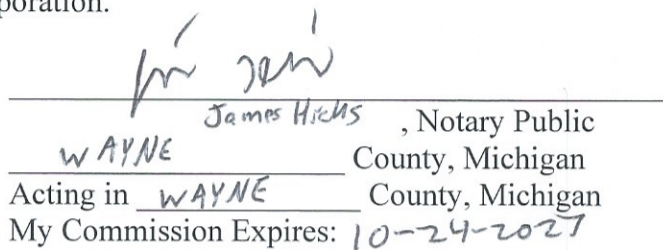 poration.
James Hicks , Notary Public
WAYNE County, Michigan
Acting in WAYNE County, Michigan
My Commission Expires: 10-24-2027